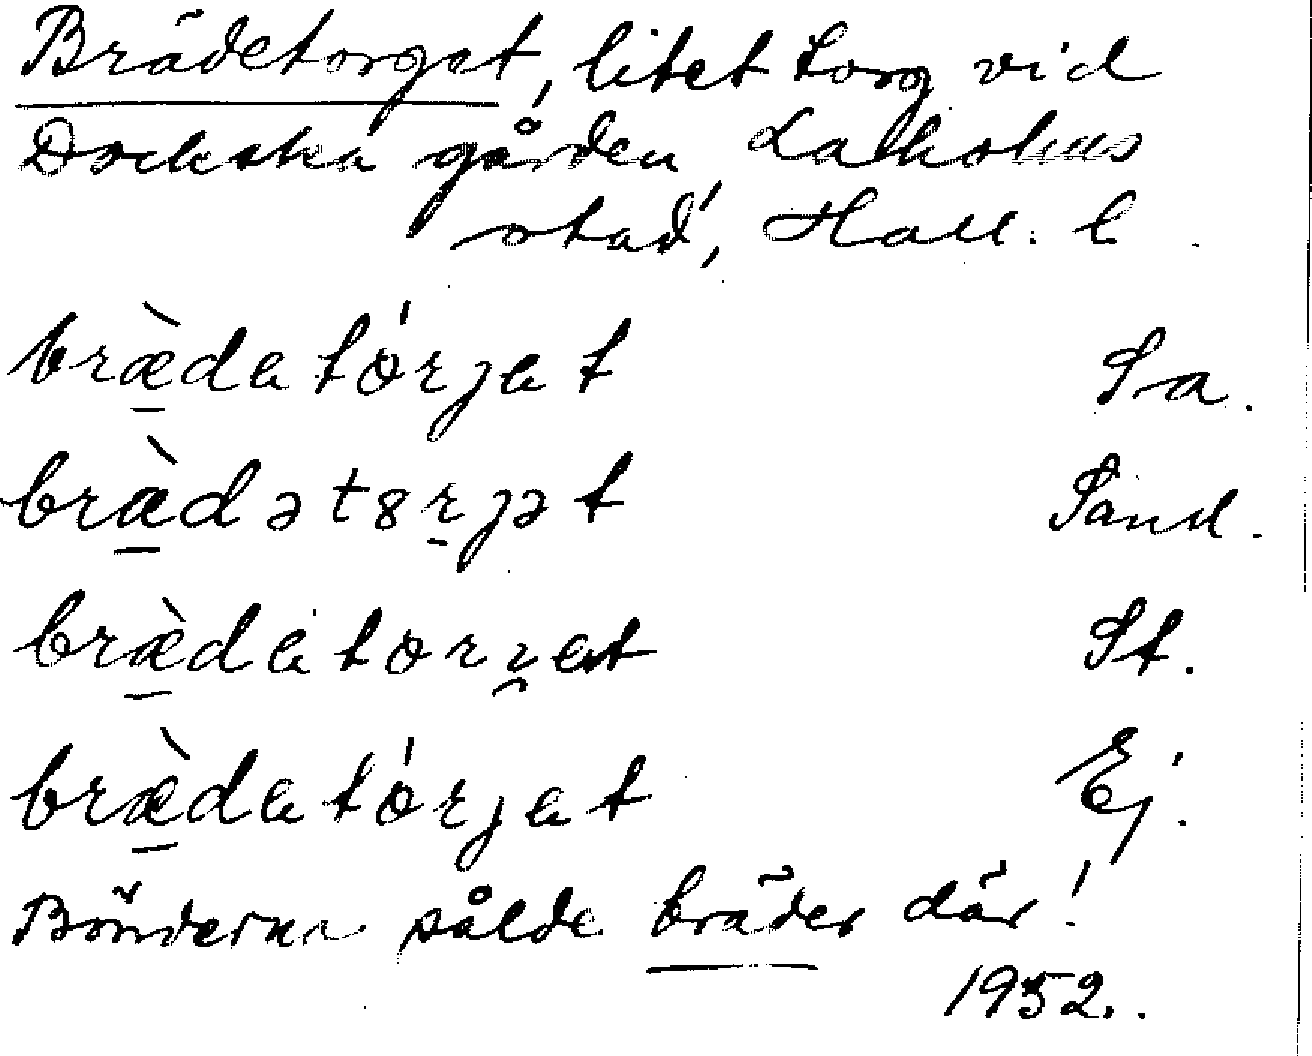 Brädetorget, litet torg vid
Dockska gården, Laholms
stad, Hall. l.
bræ̀datórjat Sa.
bræ̀dətɞrjət Sand.
bræ̀datorjat St.
bræ̀datórjat Ej.
Bönderna sålde bräder där!
1952.